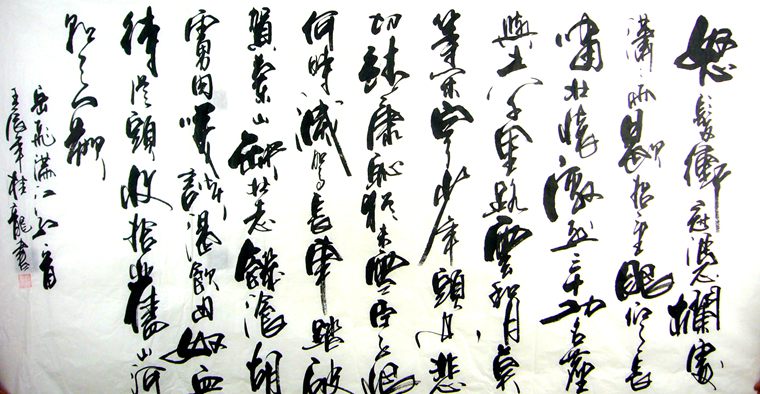 怒髮衝冠憑欄處
瀟々雨歇抬望眼仰天長
嘯壯懷激烈三十功名塵
與土八千里路雲和月莫
等閒白了少年頭空悲
切靖康恥猶未雪臣子恨
何時滅駕長車踏破
賀蘭山缺壯志饑餐胡
虜肉笑談渴飲匈奴血
待從頭收拾舊山河
朝天闕
岳飛滿江紅一首
壬辰年桂龍書